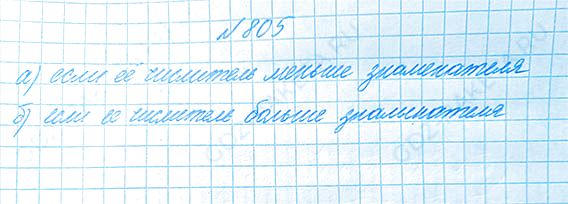 № 805
а) если её числитель меньше знаменателя
б) если ее числитель больше знаменателя